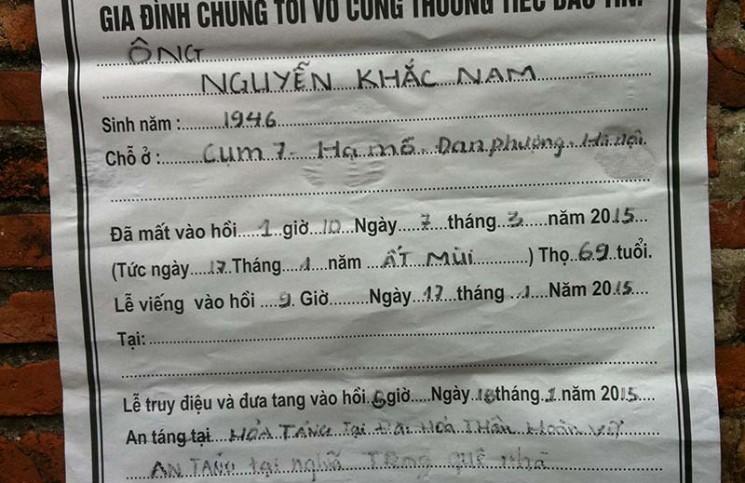 GIA ĐÌNH CHÚNG TÔI VÔ CÙNG THƯƠNG TIẾC BÁO TIN:
ÔNG
NGUYỄN KHẮC NAM
Sinh năm : 1946
Chỗ ở : Cụm 7. Hạ mỗ. Đan phượng. Hà nội.
Đã mất vào hồi 1 giờ 10 Ngày 7 tháng 3 năm 2015
(Tức ngày 17 Tháng 1 năm ẤT MÙI ) Thọ 69 tuổi.
Lễ viếng vào hồi 9 Giờ Ngày 17 tháng 1 Năm 2015
Tại:
Lễ truy điệu và đưa tang vào hồi 6 giờ Ngày 18 tháng 1 năm 2015
An táng tại HỎA TÁNG Tại Đài Hoá Thân Hoàn Vũ
AN TÁNG tại nghĩa TRang quê nhà